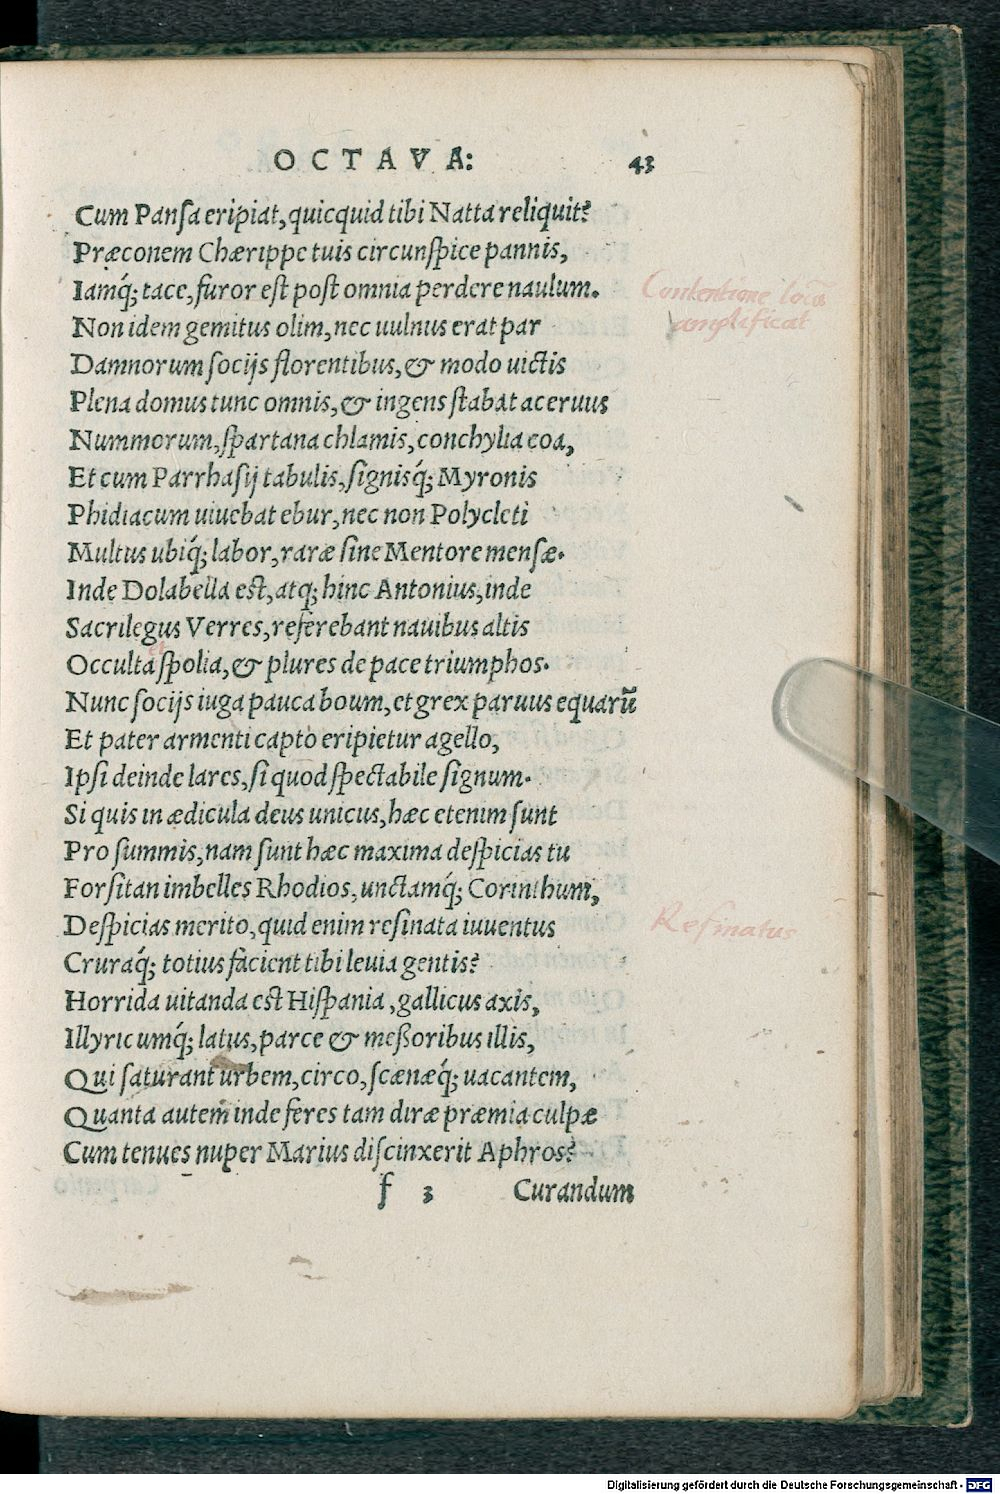 OCTAVA:
43
Cum Pansa eripiat, quicquid tibi Natta reliquit?
Præconem Chærippe tuis circunspice pannis,
Iamq́; tace, furor est post omnia perdere naulum.
Contentione locũ
amplificat
Non idem gemitus olim, nec uulnus erat par
Damnorum socijs florentibus, & modo uictis
Plena domus tunc omnis, & ingens stabat aceruus
Nummorum, spartana chlamis, conchylia coa,
Et cum Parrhasij tabulis, signisq́; Myronis
Phidiacum uiuebat ebur, nec non Polycleti
Multus ubiq́; labor, raræ sine Mentore mensæ.
Inde Dolabella est, atq; hinc Antonius, inde
Sacrilegus Verres, referebant nauibus altis
et
Occulta spolia, & plures de pace triumphos.
Nunc socijs iuga pauca boum, et grex paruus equarũ
Et pater armenti capto eripietur agello,
Ipsi deinde lares, si quod spectabile signum.
Si quis in ædicula deus unicus, hæc etenim sunt
Pro summis, nam sunt hæc maxima despicias tu
Forsitan imbelles Rhodios, unctamq́; Corinthum,
Despicias merito, quid enim resinata iuuentus
Resinatus
Cruraq́; totius facient tibi leuia gentis?
Horrida uitanda est Hispania, gallicus axis,
Illyricumq́; latus, parce & meßoribus illis,
Qui saturant urbem, circo, scænæq́; uacantem,
Quanta autem inde feres tam diræ præmia culpæ
Cum tenues nuper Marius discinxerit Aphros?
f 3
Curandum
Digitalisierung gefördert durch die Deutsche Forschungsgemeinschaft - DFG